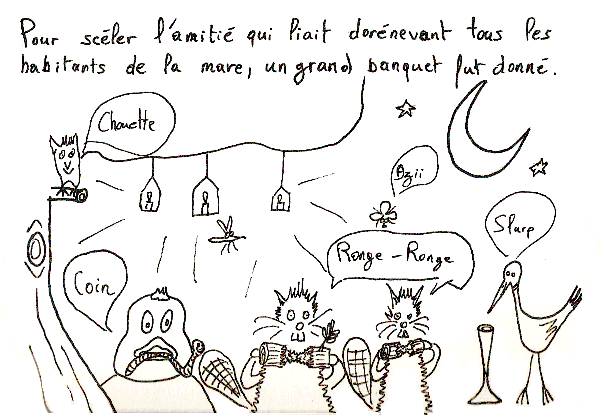 Pour scéler l'amitié qui liait dorénevant tous les
habitants de la mare, un grand banquet fut donné.
Chouette
Dzii
Slurp
Ronge - Ronge
Coin